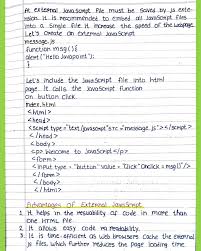 At external JavaScript file must be saved by .js exte-
nsion. It is recommended to embed all JavaScript files
into a single file it increase the speed of the webpage.
Let's create an External JavaScript
message.js
function msg(){
alert("Hello Javapoint");
}
Let's include the JavaScript file into html
page. It calls the JavaScript function
on button click.
index.html
<html>
<head>
<script type="text/javascript" src="message.js"></script>
</head>
<body>
<p> Welcome to JavaScript </p>
<form>
<input type="button" value="Click" Onclick=msg()"/>
</form>
</body>
</html>
Advantages of External JavaScript
1. It helps in the reusability of code in more than
one HTML file
2. It allows easy code readability.
3. It is time-efficient as web browsers cache the external
js files, which further reduces the page loading time.